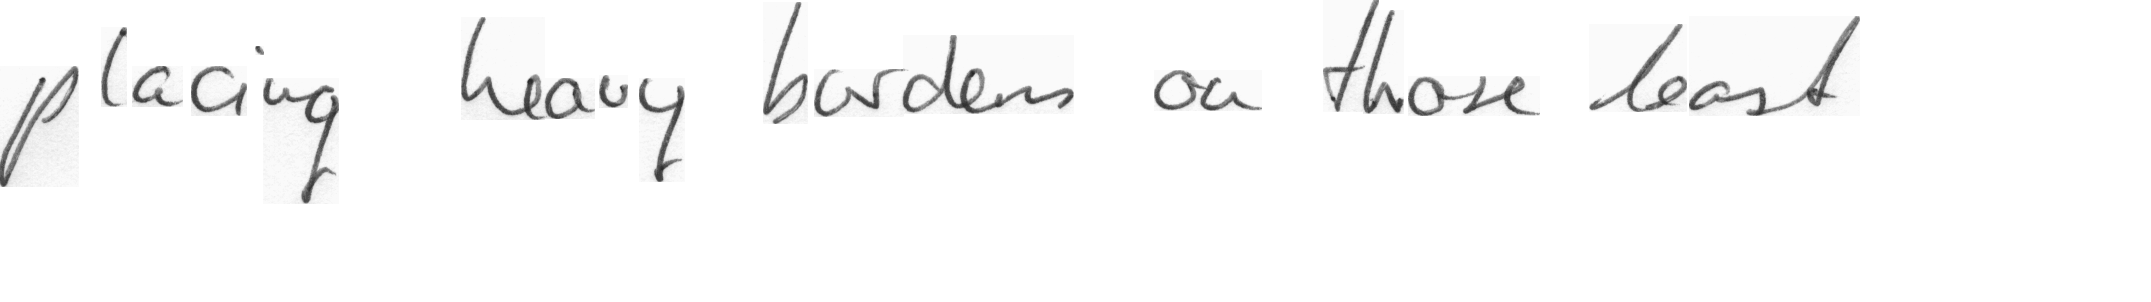 placing heavy burdens on those least